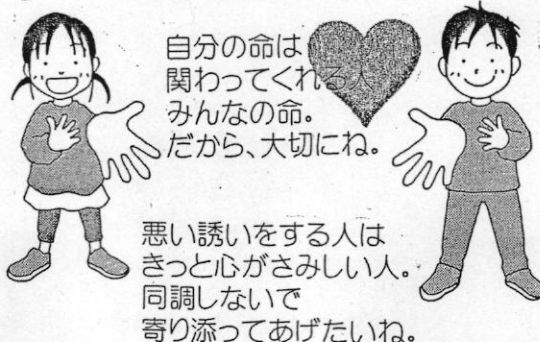 自分の命は
関わってくれる人
みんなの命。
だから、大切にね。
悪い誘いをする人は
きっと心がさみしい人。
同調しないで
寄り添ってあげたいね。